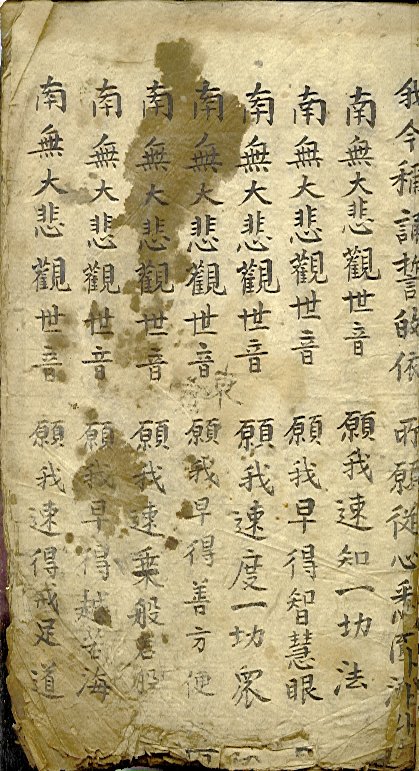 我今稱誦誓皈依 所願從心悉圓滿
南無大悲觀世音 願我速知一切法
南無大悲觀世音 願我早得智慧眼
南無大悲觀世音 願我速度一切眾
南無大悲觀世音 願我早得善方便
南無大悲觀世音 願我速乗般若船
南無大悲觀世音 願我早得越苦海
南無大悲觀世音 願我速得戒足道